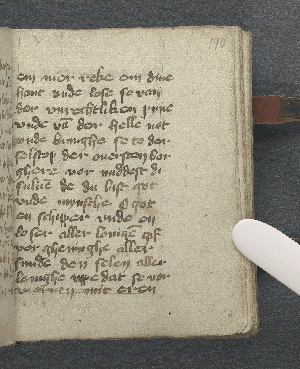 190
em mor reke em dine
hant vnde lose se van
der vnrechtliken pine
vnde vā der helle not
vnde bringhe se to der
selscop der ouersten bor
ghere vor middest di
suluen de du bist got
vnde mynsche O got
en schipper vnde en
loser aller louigē gif
vor gheuinghe aller
sunde den selen aller
louighe vppe dat se vor
weruen mit eren